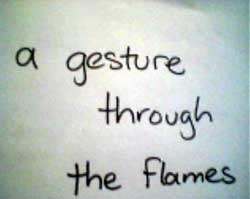 a gesture
through
the flames